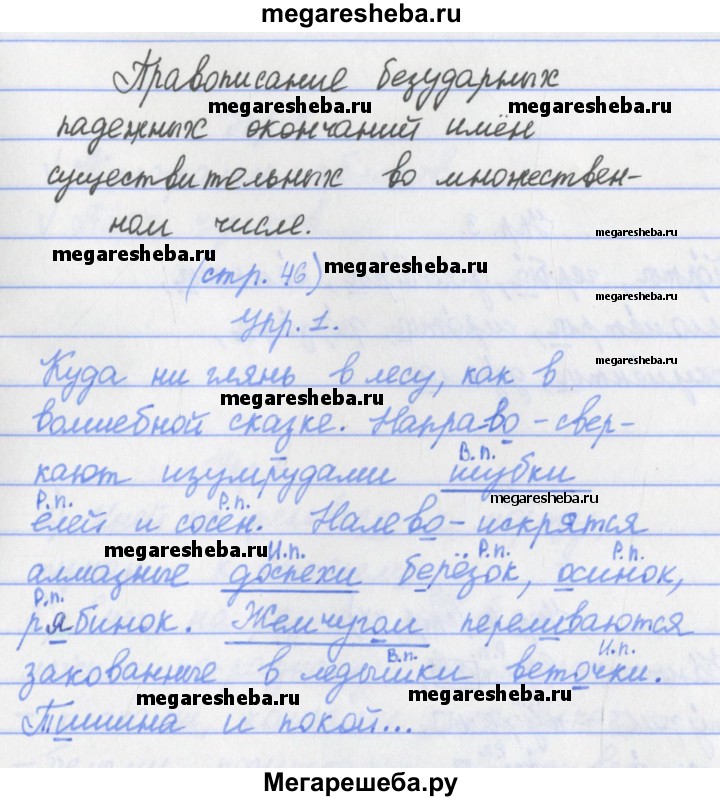 megaresheba.ru
Правописание безударных
megaresheba.ru megaresheba.ru
падежных окончаний имён
существительных во множествен-
ном числе.
megaresheba.ru
megaresheba.ru (стр. 46) megaresheba.ru
megaresheba.ru
Упр. 1.
megaresheba.ru
Куда ни глянь в лесу, как в
megaresheba.ru
волшебной сказке. Направо - свер-
В.п.
кают изумрудами шубки
Р.п. Р.п. megaresheba.ru
елей и сосен. Налево - искрятся
megaresheba.ru И.п. Р.п. Р.п.
алмазные доспехи берёзок, осинок,
Р.п.
рябинок. Жемчугом переливаются
В.п. И.п.
закованные в ледышки веточки.
megaresheba.ru megaresheba.ru
Тишина и покой...
Мегарешеба.ру